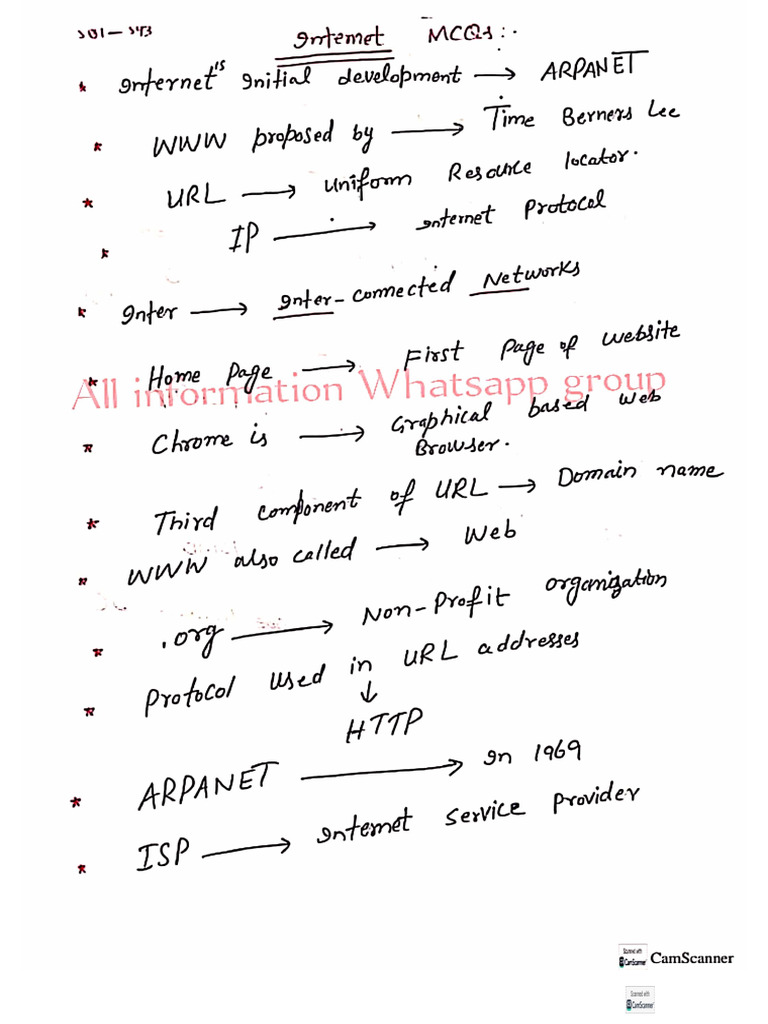 Internet MCQs:.
* Internet's Initial development → ARPANET
* WWW proposed by → Time Berners Lee
* URL → Uniform Resource locator.
* IP → Internet Protocol
* Inter → Inter-connected Networks
* Home Page → First Page of website
All information Whatsapp group
* Chrome is → Graphical based web
Browser.
* Third component of URL → Domain name
* WWW also called → Web
* .org → Non-Profit organization
* Protocol used in URL addresses
↓
HTTP
* ARPANET → In 1969
* ISP → Internet Service Provider
Scanned with
CamScanner CamScanner
Scanned with
CamScanner